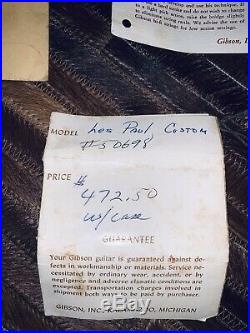 and use his technique, it
to a light pick action, raise the bridge slightly
to eliminate string reels. We advise the use of
Gibson strings for low action settings.
Gibson, I
MODEL Les Paul Custom
#50698
PRICE $
472.50
w/case
GUARANTEE
Your Gibson guitar is guaranteed against de-
fects in workmanship or materials. Service ne-
cessitated by ordinary wear, accident, or by
negligence and adverse climatic conditions are
excepted. Transportation charges involved in
shipment both ways to be paid by purchaser.
GIBSON, INC., KALAMAZOO, MICHIGAN